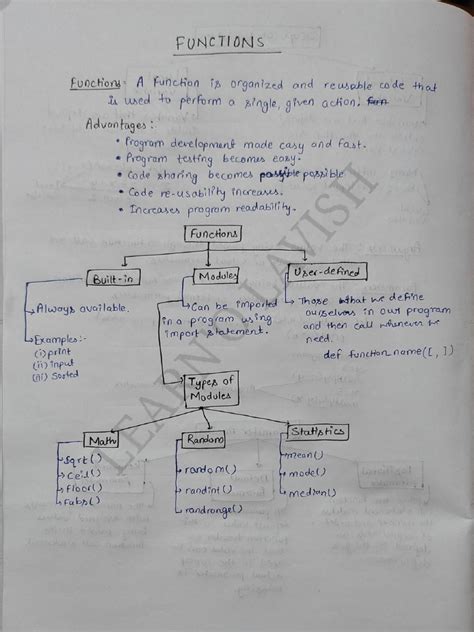 FUNCTIONS
Functions:- A function is organized and reusable code that
is used to perform a single, given action.
Advantages:-
• Program development made easy and fast.
• Program testing becomes easy.
• Code sharing becomes possible possible
• Code re-usability increases.
• Increases program readability.
Functions
Built-in
Modules
User-defined
Always available.
Examples:-
(i) print
(ii) input
(iii) Sorted
Can be imported
in a program using
import statement.
Those that we define
ourselves in our program
and then call whenever we
need.
def function name([, ])
Types of
Modules
Math
Random
Statistics
Sqrt()
Ceil()
floor()
fabs()
random()
randint()
randrange()
mean()
mode()
median()
LEARN O LAVISH